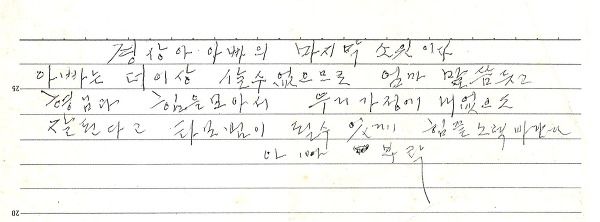 경상아 아빠의 마지막 소원이다
아빠는 더이상 살수없으므로 엄마 말씀듣고
형님과 힘을모아서 우리가정에 내없으도
잘된다고 타모범이 될수 있게 힘쓸노력 바란다
아빠 부탁
25
20